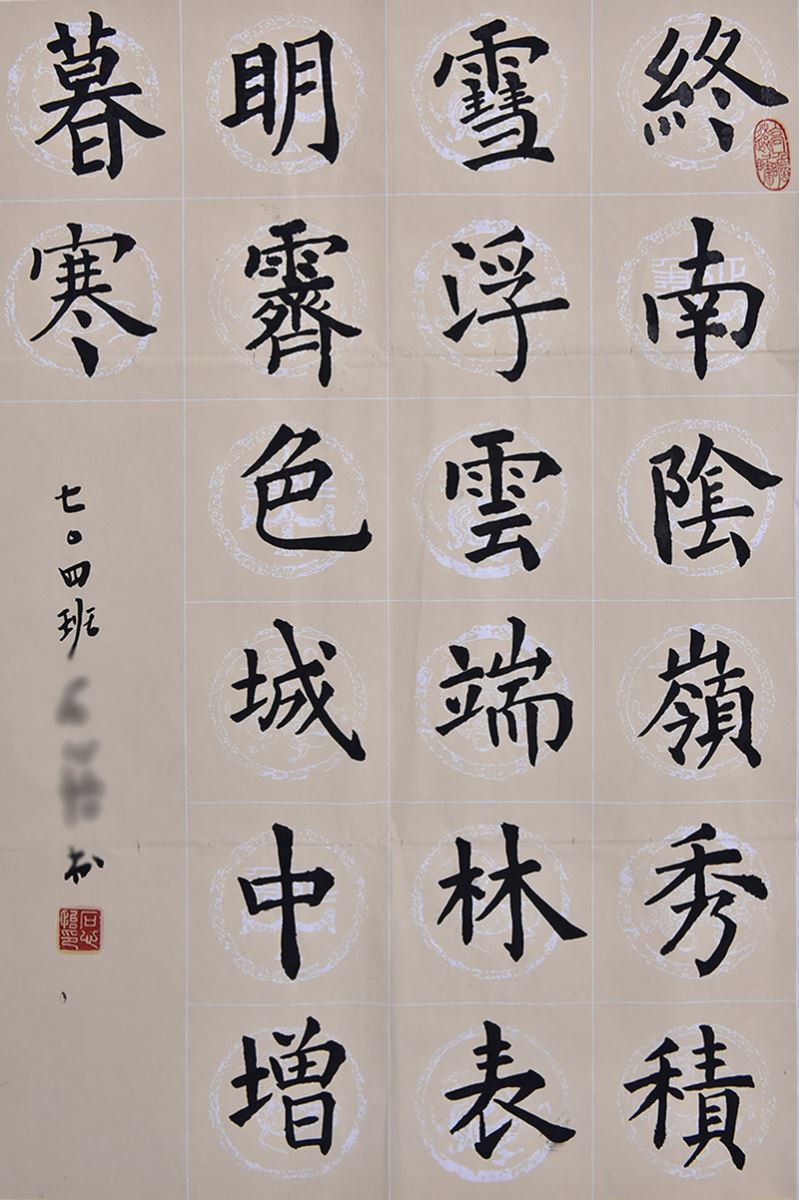 終南陰嶺秀積
雪浮雲端林表
明霽色城中增
暮寒
七〇四班
书